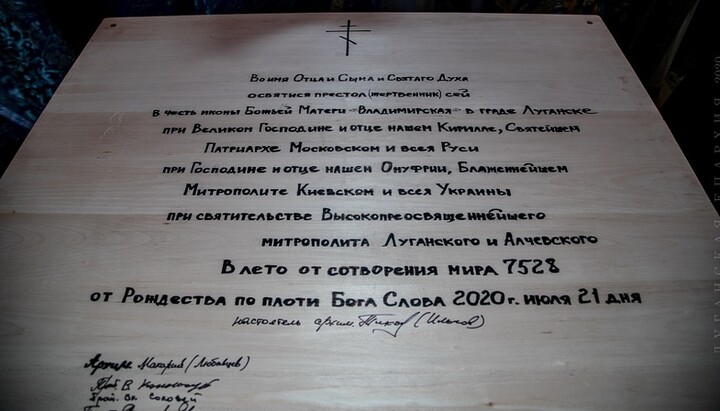 Во имя Отца и Сына и Святаго Духа
освятися престол (жертвенник) сей
в честь иконы Божьей Матери "Владимирская" в граде Луганске
при Великом Господине и отце нашем Кирилле, Святейшем
Патриархе Московском и всея Руси
при Господине и отце нашем Онуфрии, Блаженнейшем
Митрополите Киевском и всея Украины
при святительстве Высокопреосвященнейшего
митрополита Луганского и Алчевского
В лето от сотворения мира 7528
от Рождества по плоти Бога Слова 2020 г. июля 21 дня
настоятель архим. Тихон
Архим. Макарий (Любавцев)
Прот. В.
Прот. Вл. Соловей